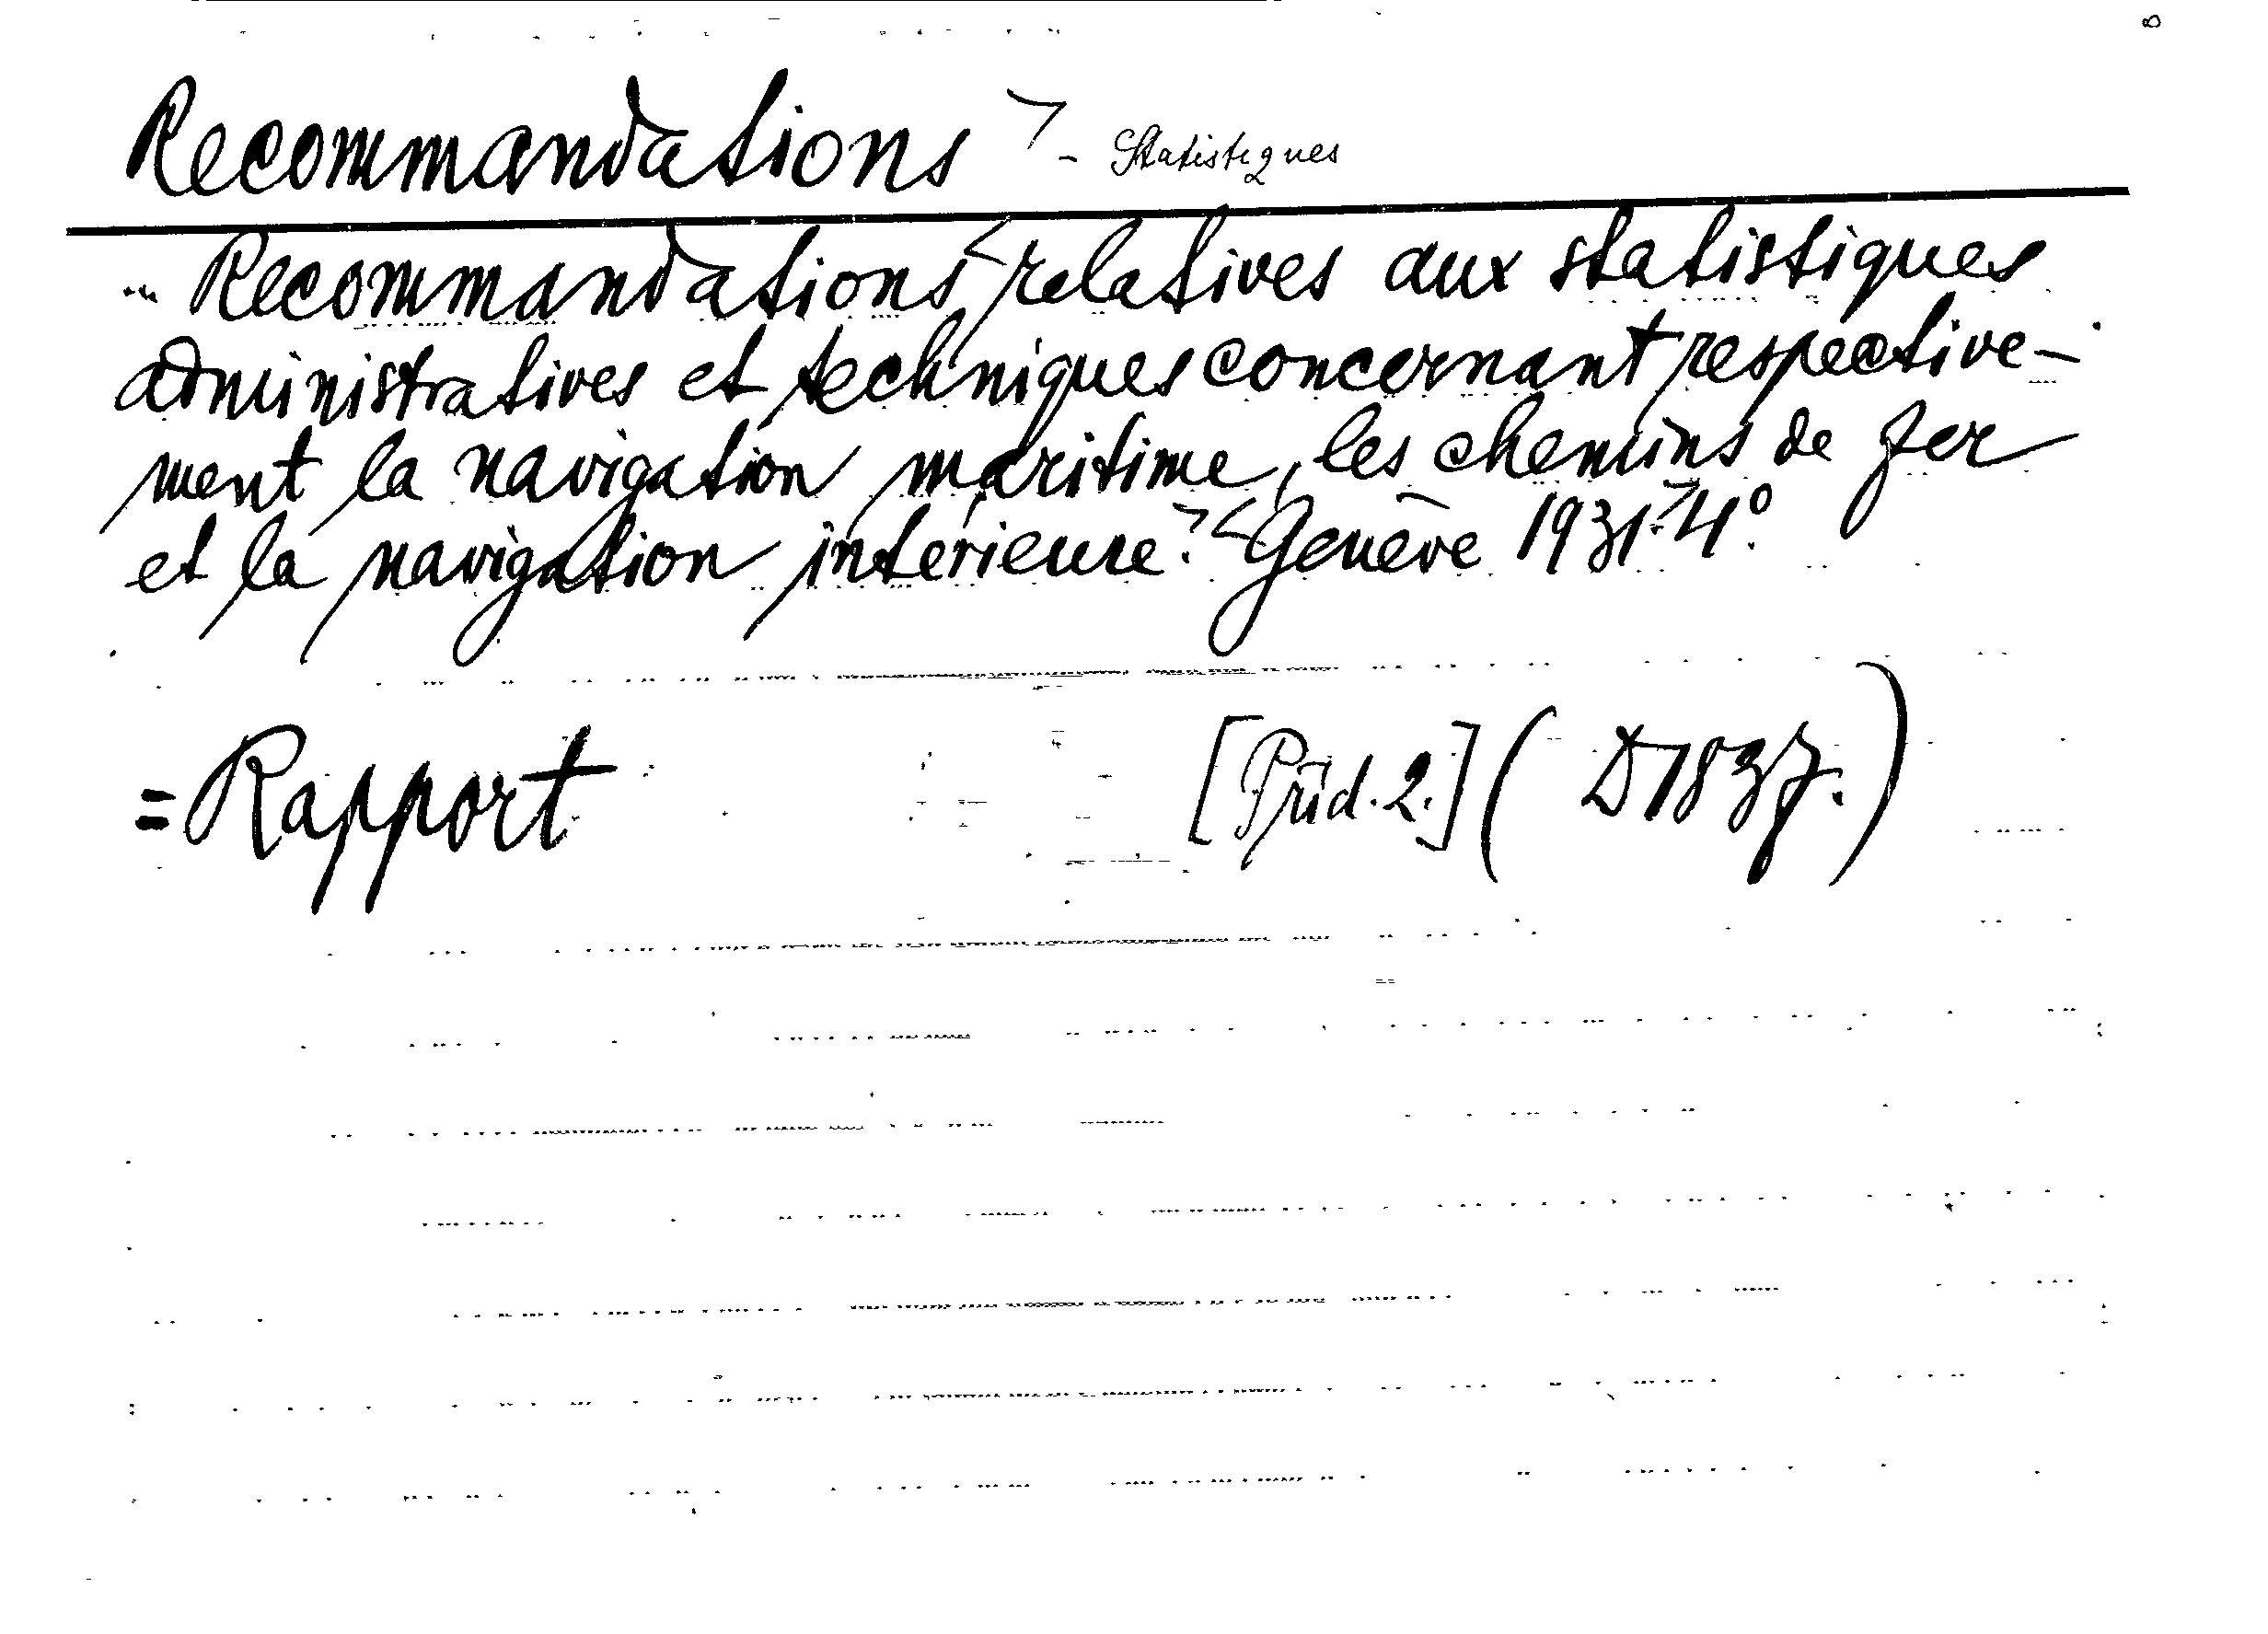 Recommandations - Statistiques
Recommandations relatives aux statistiques
administratives et techniques concernant respective-
ment la navigation maritime, les chemins de fer
et la navigation intérieure. Genève 1931. 4°.
= Rapport [Präd. 2.] ( D 1837. )